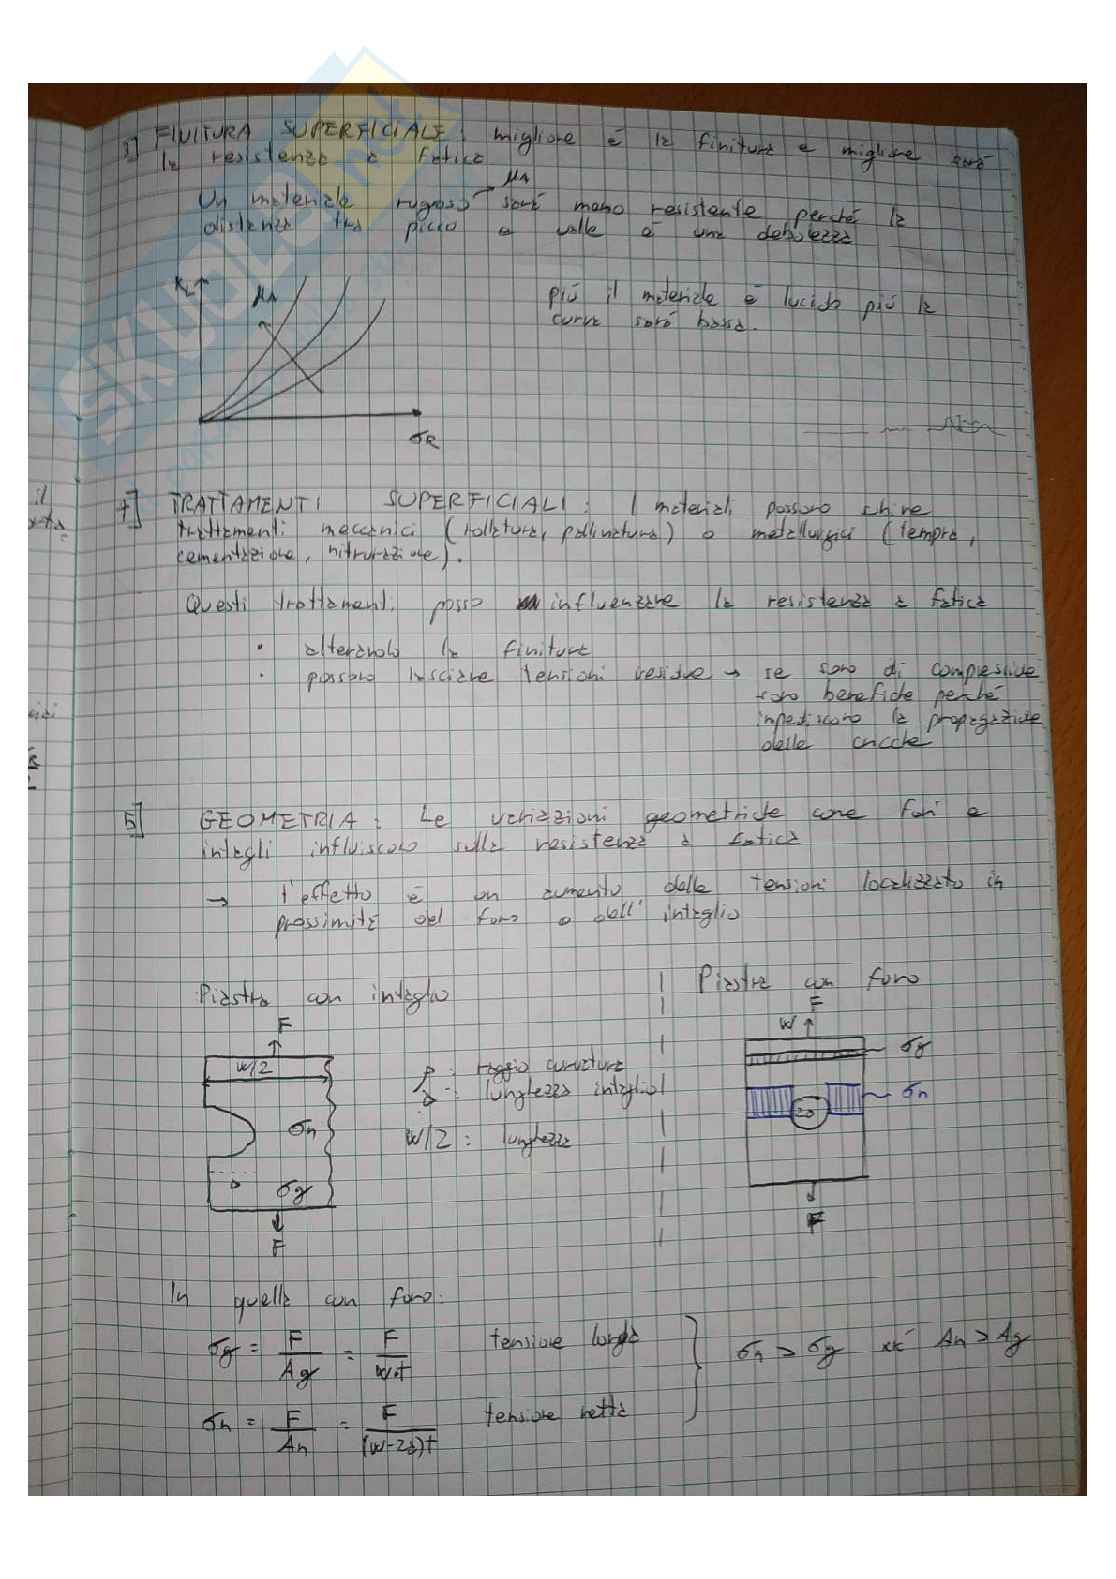 3] FINITURA SUPERFICIALE: migliore è la finitura e migliore sarà
la resistenza a fatica
μA
Un materiale rugoso → sarà meno resistente perché la
distanza tra picco e valle è una debolezza
KL
μA
σR
più il materiale è lucido più la
curva sarà bassa.
il
4] TRATTAMENTI SUPERFICIALI: I materiali possono
trattamenti meccanici (rollatura, pallinatura) o metallurgici (tempra,
cementazione, nitrurazione).
Questi trattamenti posso influenzare la resistenza a fatica
· alterando la finitura
· possono lasciare tensioni residue → se sono di compressione
sono benefiche perché
impediscono la propagazione
delle cricche
5] GEOMETRIA: Le variazioni geometriche come fori e
intagli influiscono sulla resistenza a fatica
→ L'effetto è un aumento delle tensioni localizzato in
prossimità del foro o dell'intaglio
Piastra con intaglio
F
W/2
σn
a
σg
F
ρ: raggio curvatura
a: lunghezza intaglio
W/2: lunghezza
Piastra con foro
F
W
σg
σn
2a
F
In quella con foro:
σg = F/Ag = F/W·t tensione lorda
σn = F/An = F/(W-2a)t tensione netta
σn > σg An > Ag
SKUOLA
.net